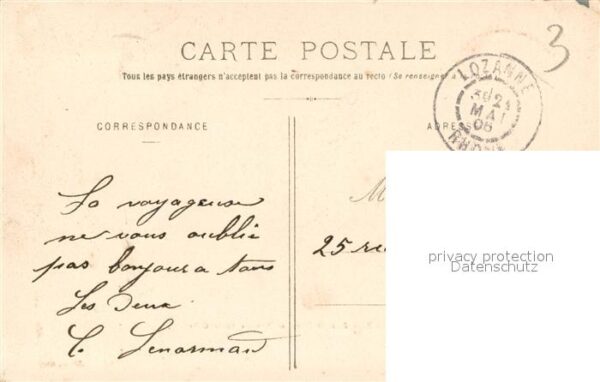 3
CARTE POSTALE
Tous les pays étrangers n'acceptent pas la correspondance au recto (Se renseigner à
LOZANNE
21
MAI
06
RHONE
CORRESPONDANCE
ADRES
M
25 ru
La voyageuse
ne vous oublie
pas bonjour a tous
Les Deux
C. Lenormand
privacy protection
Datenschutz